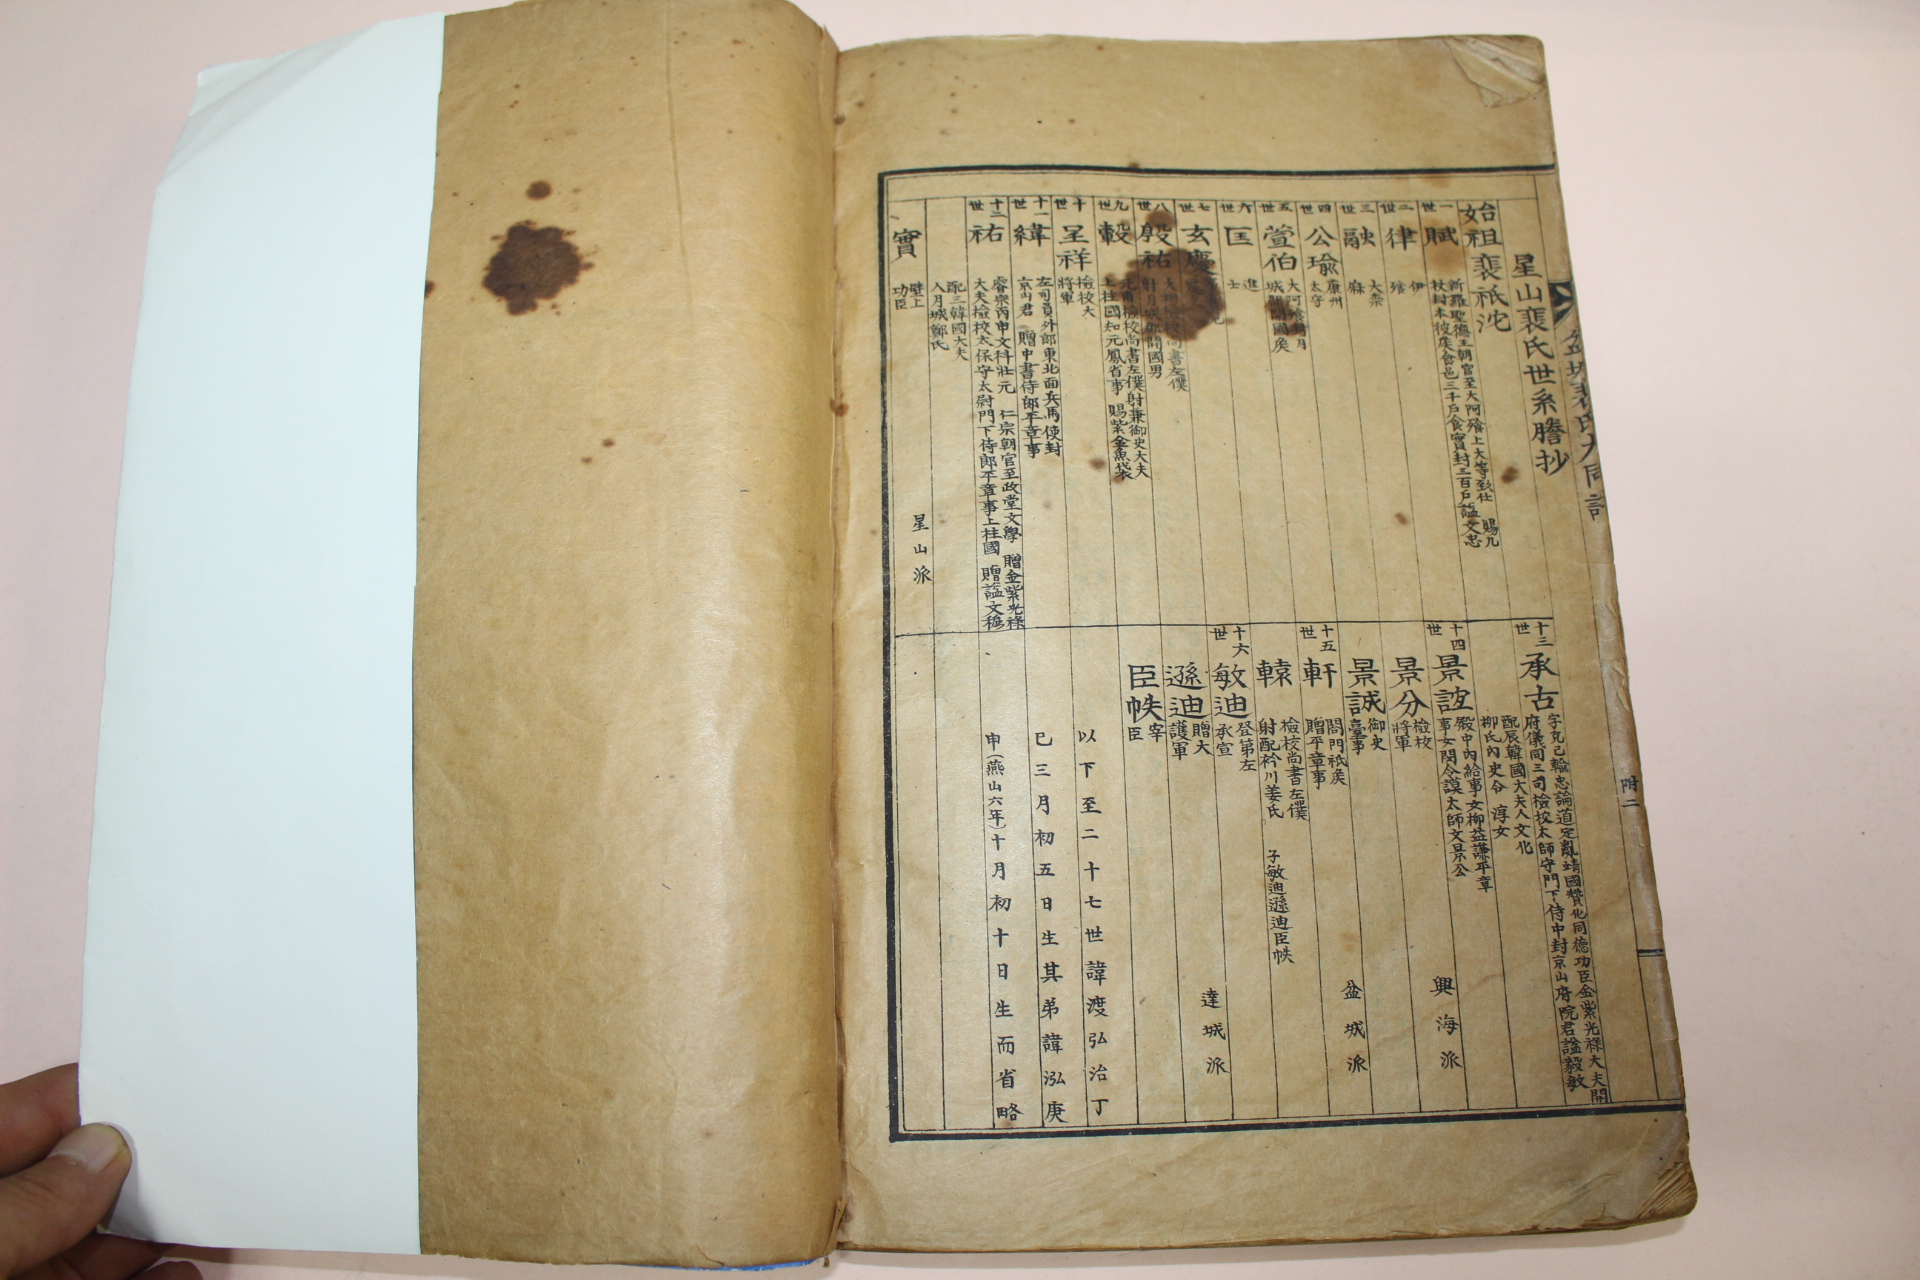 盆城裴氏大同譜
附二
星山裴氏世系謄抄
始祖裴祇沱
一世 賦 新羅聖德王朝官至大阿飱上大等致仕 賜九
杖封本彼矦食邑三千戶食實封三百戶諡文忠
二世 律 伊飱
三世 融 大柰麻
四世 公瑜 康州太守
五世 萱伯 大阿飱封月
城開國矦
六世 匡 進士
七世 玄慶
八世 殷祐 檢校尚書左僕
射月城郡開國男
九世 轂 檢校尚書左僕射兼御史大夫
上柱國知元鳳省事 賜紫金魚袋
十世 呈祥 檢校大將軍
十一世 緯 左司員外郎東北面兵馬使封
京山君 贈中書侍郎平章事
十二世 祐 睿宗丙申文科壯元 仁宗朝官至政堂文學 贈金紫光祿
大夫檢校太保守太尉門下侍郎平章事上柱國 贈諡文穆
配三韓國大夫
人月城鄭氏
實 壁上功臣 星山派
十三世 承古 字克己輸忠論道定亂靖國贊化同德功臣金紫光祿大夫開
府儀同三司檢校太師守門下侍中封京山府院君諡毅敏
配辰韓國大夫人文化
柳氏內史令 淳女
十四世 景 殿中內給事女柳益謙平章
事女閔令謨太師文景公 興海派
景分 檢校將軍
景誠 御史臺事 盆城派
十五世 軒 閤門祇矦
贈平章事
轅 檢校尚書左僕
射配衿川姜氏 子敏迪遜迪臣帙
十六世 敏迪 登第左承宣 達城派
遜迪 贈大護軍
臣帙 宰臣
以下至二十七世諱渡弘治丁
巳三月初五日生其弟諱泓庚
申(燕山六年)十月初十日生而省略